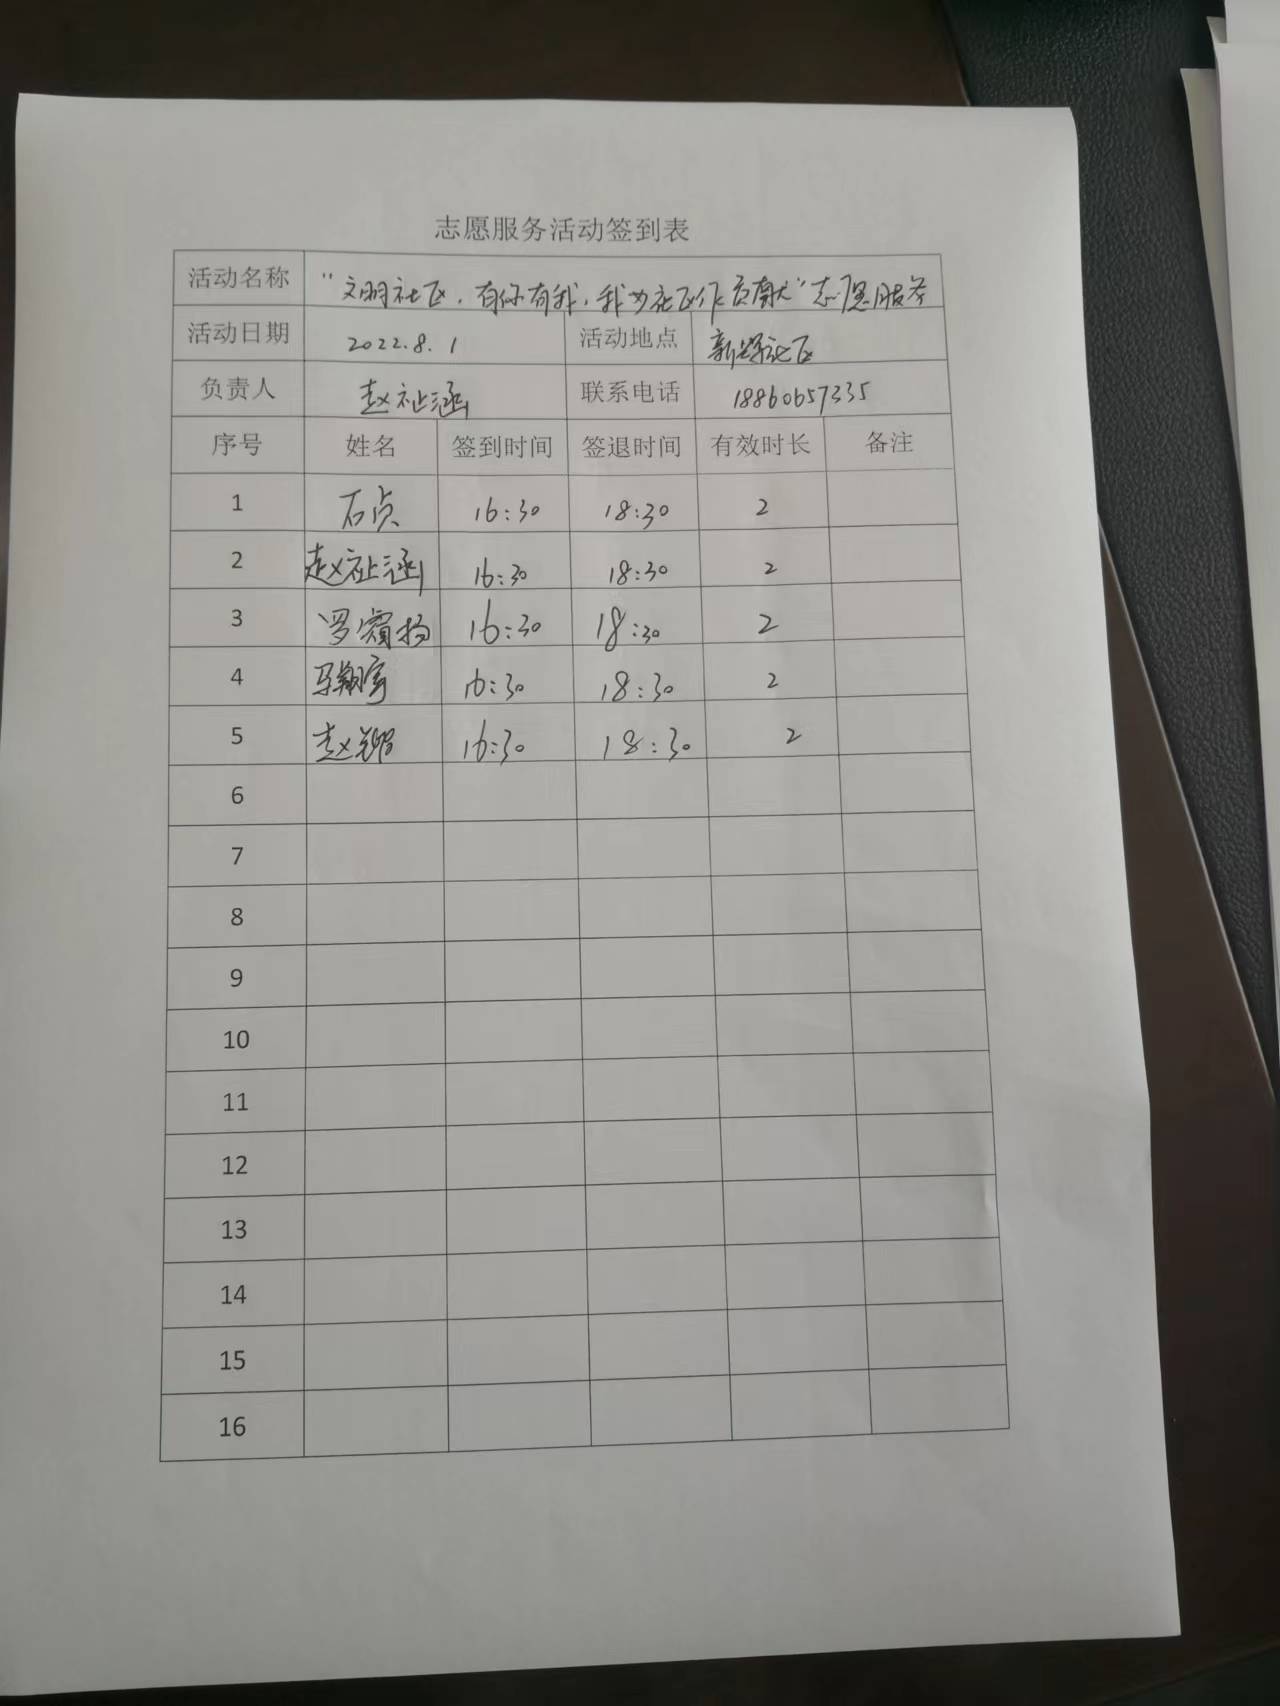 志愿服务活动签到表
活动名称 "文明社区,有你有我,我为社区作贡献"志愿服务
活动日期 2022.8.1 活动地点 社区
负责人 赵祉涵 联系电话 18860657335
序号 姓名 签到时间 签退时间 有效时长 备注
1 石贞 16:30 18:30 2
2 赵祉涵 16:30 18:30 2
3 罗扬 16:30 18:30 2
4 马翔宇 16:30 18:30 2
5 赵 16:30 18:30 2
6
7
8
9
10
11
12
13
14
15
16